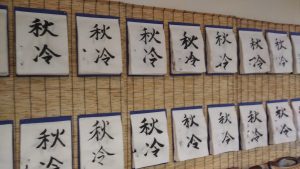 秋冷
秋冷
秋冷
秋冷
秋冷
秋冷
秋冷
秋冷
秋冷
秋冷
秋冷
秋冷
秋冷
秋冷